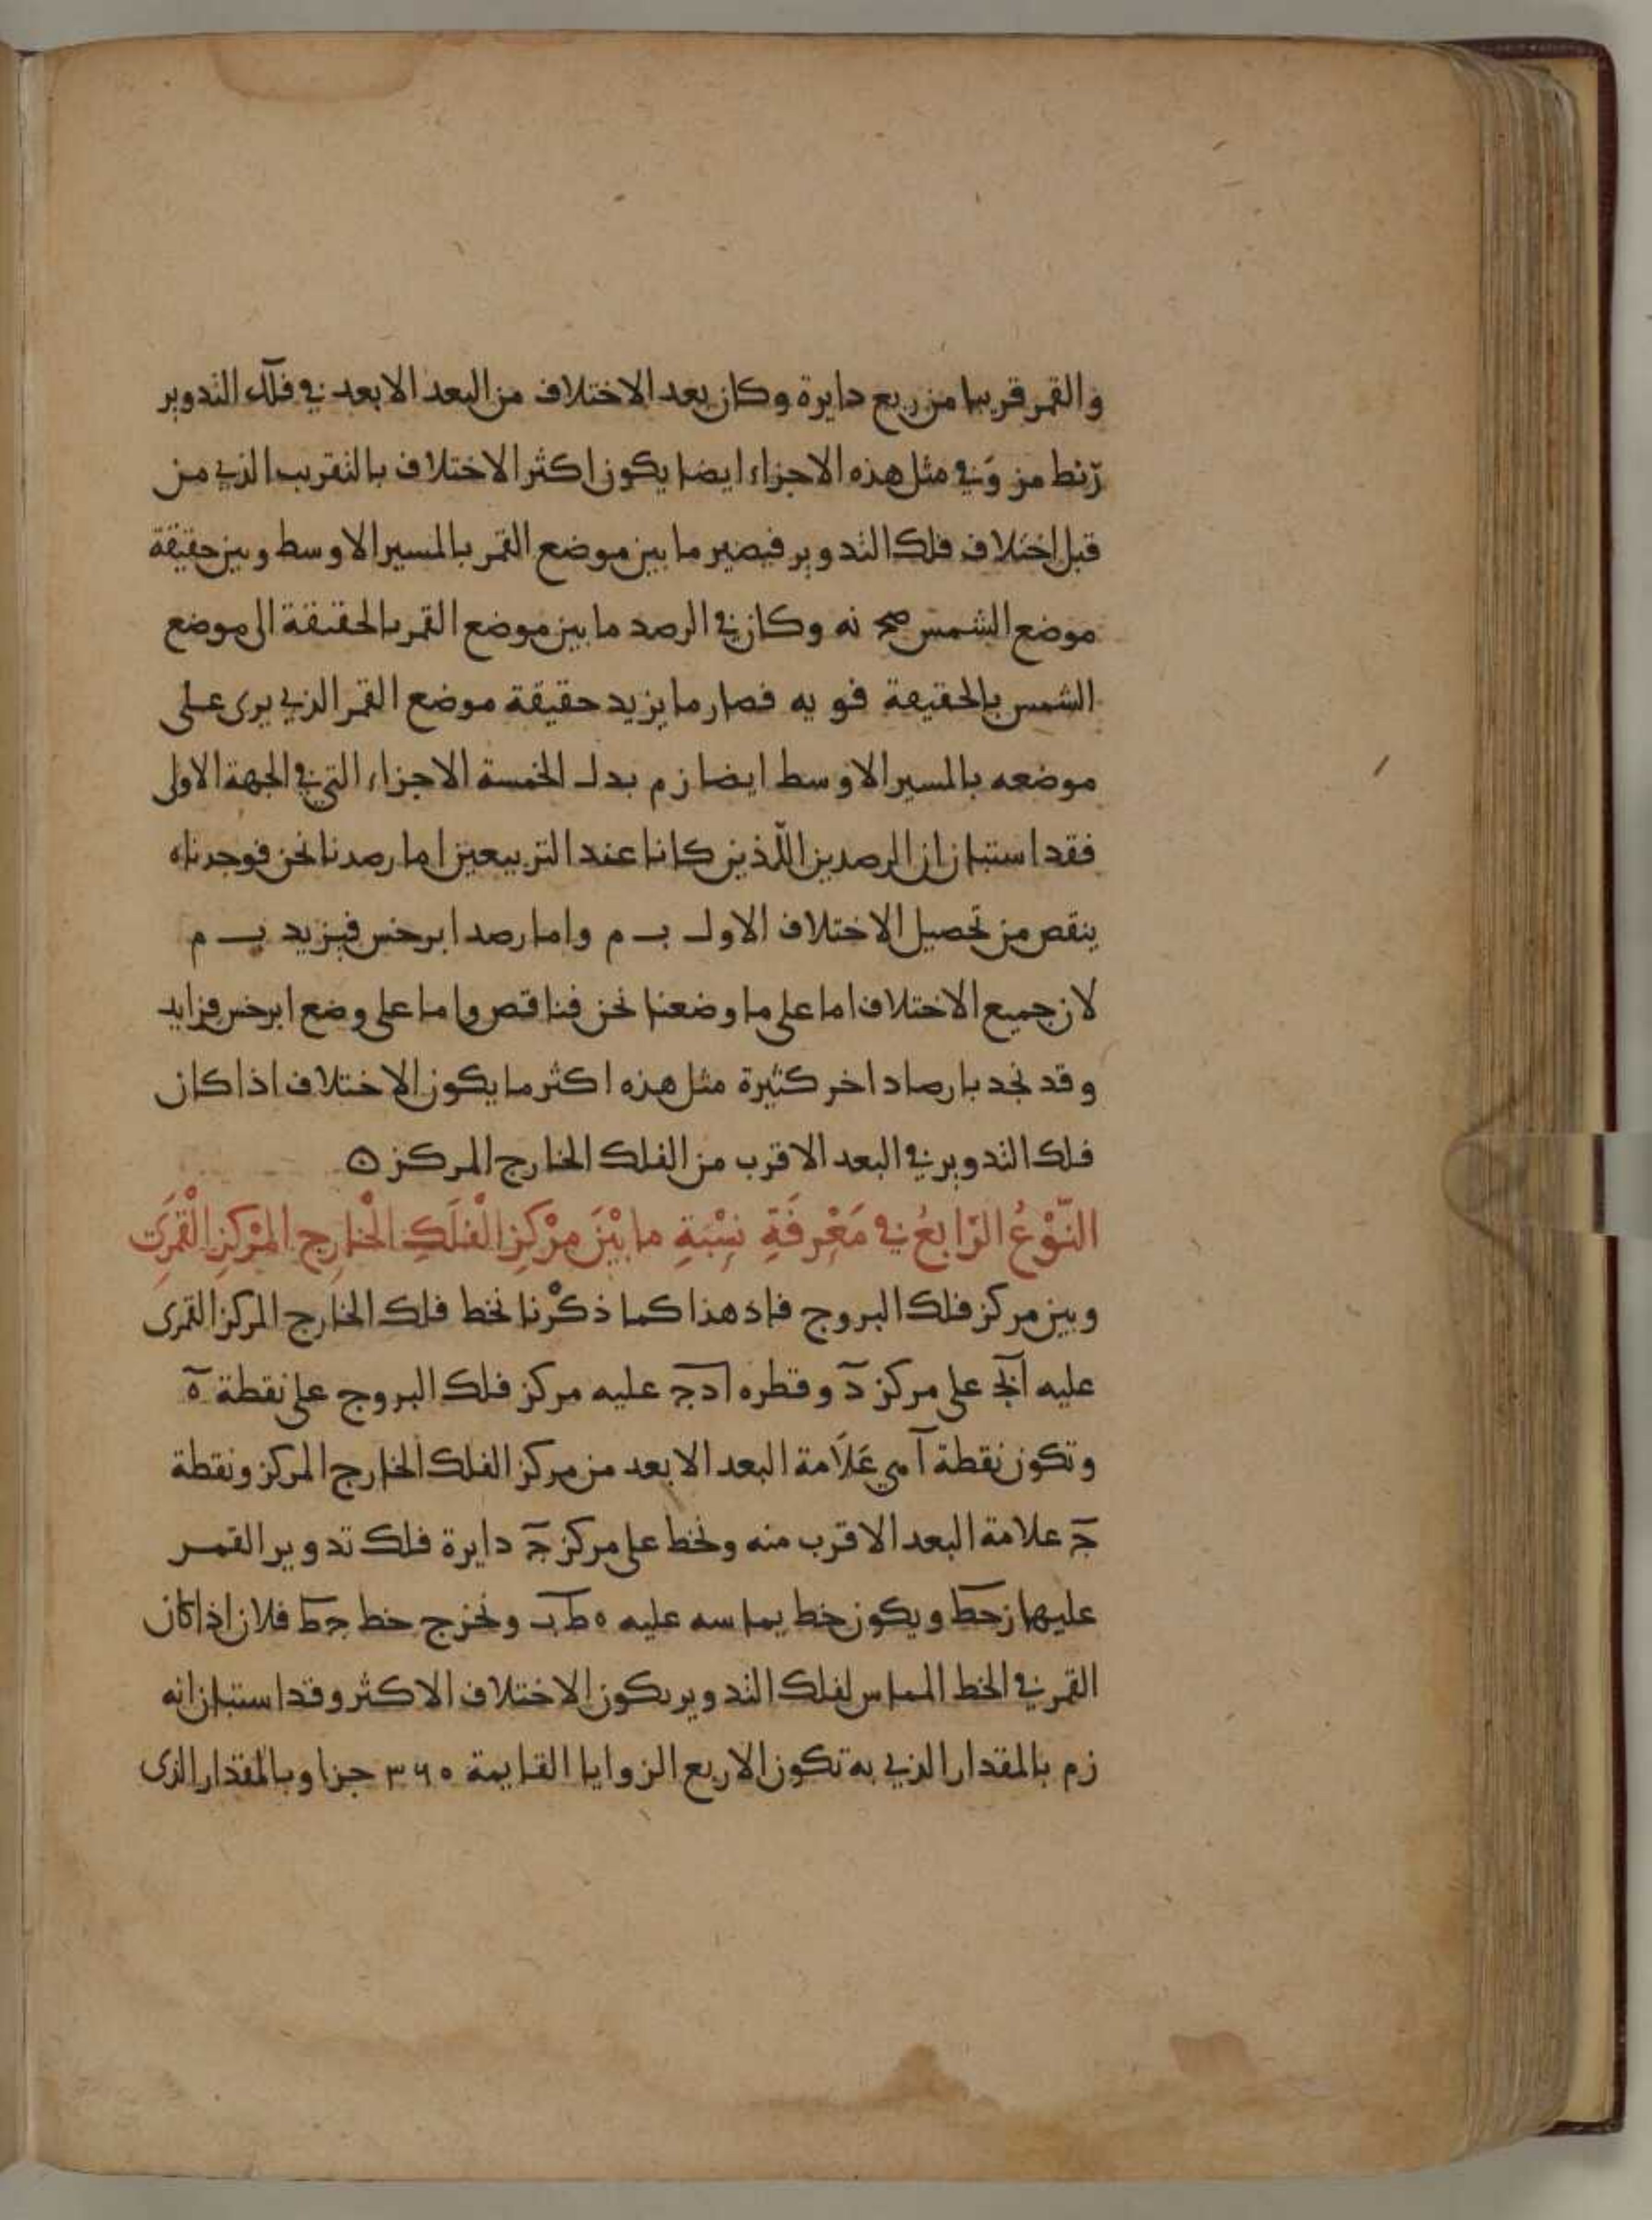 والقمر قريبا من ربع دايرة وكان بعد الاختلاف من البعد الابعد في فلك التدوير
رنط من وفي مثل هذه الاجزاء ايضا يكون اكثر الاختلاف بالتقريب الذي من
قبل اختلاف فلك التدوير فيصير ما بين موضع القمر بالمسير الاوسط وبين حقيقة
موضع الشمس نه وكان في الرصد ما بين موضع القمر بالحقيقة الى موضع
الشمس بالحقيقة فو يه فصار ما يزيد حقيقة موضع القمر الذي يرى على
موضعه بالمسير الاوسط ايضا ز م بدل الخمسة الاجزاء التي في الجهة الاولى
فقد استبان ان الرصدين اللّذين كانا عند التربيعين اما رصدنا نحن فوجدناه
ينقص من تحصيل الاختلاف الاول ب م واما رصد ابرخس فيزيد ب م
لان جميع الاختلاف اما على ما وضعنا نحن فناقص واما على وضع ابرخس فزايد
وقد نجد بارصاد اخر كثيرة مثل هذه اكثر ما يكون الاختلاف اذا كان
فلك التدوير في البعد الاقرب من الفلك الخارج المركز
النّوْعُ الرّابعُ في مَعْرِفَةِ نِسْبَةِ ما بيْنَ مرْكزِ الْفَلَكِ الْخارِجِ المرْكزِ الْقمَرِي
وبين مركز فلك البروج فاذ هذا كما ذكْرنا نخط فلك الخارج المركز القمرى
عليه ابج على مركز د وقطره ادج عليه مركز فلك البروج على نقطة ه
وتكون نقطة ا هي عَلَامة البعد الابعد من مركز الفلك الخارج المركز ونقطة
ج علامة البعد الاقرب منه ونخط على مركز ج دايرة فلك تدوير القمر
عليها زحط ويكون خط يماسه عليه ه ط ب ونخرج خط جط فلان اذا كان
القمر في الخط المماس لفلك التدوير يكون الاختلاف الاكثر وقد استبان انه
ز م بالمقدار الذي به تكون الاربع الزوايا القايمة ٣٦٠ جزا وبالمقدار الذى